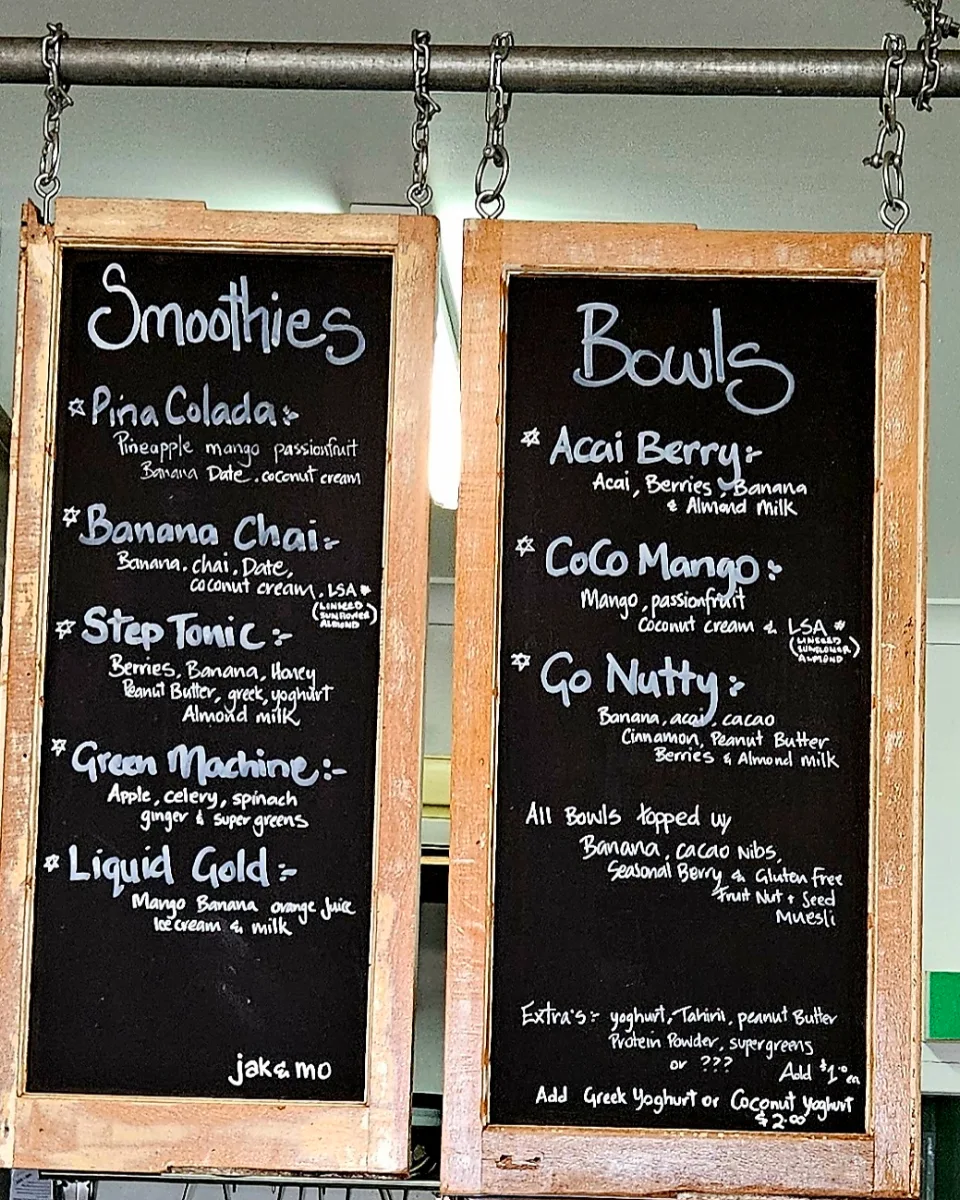 Smoothies
Pina Colada:-
Pineapple mango passionfruit
Banana Date, coconut cream
Banana Chai:-
Banana, chai, Date,
coconut cream, LSA *
(LINSEED
SUNFLOWER
ALMOND)
Step Tonic:-
Berries, Banana, Honey
Peanut Butter, greek yoghurt
Almond milk
Green Machine:-
Apple, celery, spinach
ginger & super greens
Liquid Gold:-
Mango Banana orange juice
Ice cream & milk
jak & mo
Bowls
Acai Berry:-
Acai, Berries, Banana
& Almond Milk
CoCo Mango:-
Mango, passionfruit
Coconut cream & LSA *
(LINSEED
SUNFLOWER
ALMOND)
Go Nutty:-
Banana, acai, cacao
Cinnamon, Peanut Butter
Berries & Almond milk
All Bowls topped w/
Banana, cacao Nibs,
Seasonal Berry & Gluten Free
Fruit Nut + Seed
Muesli
Extra's:- yoghurt, Tahini, peanut Butter
Protein Powder, supergreens
or ???
Add $1.00 ea
Add Greek Yoghurt or Coconut Yoghurt
$2.00